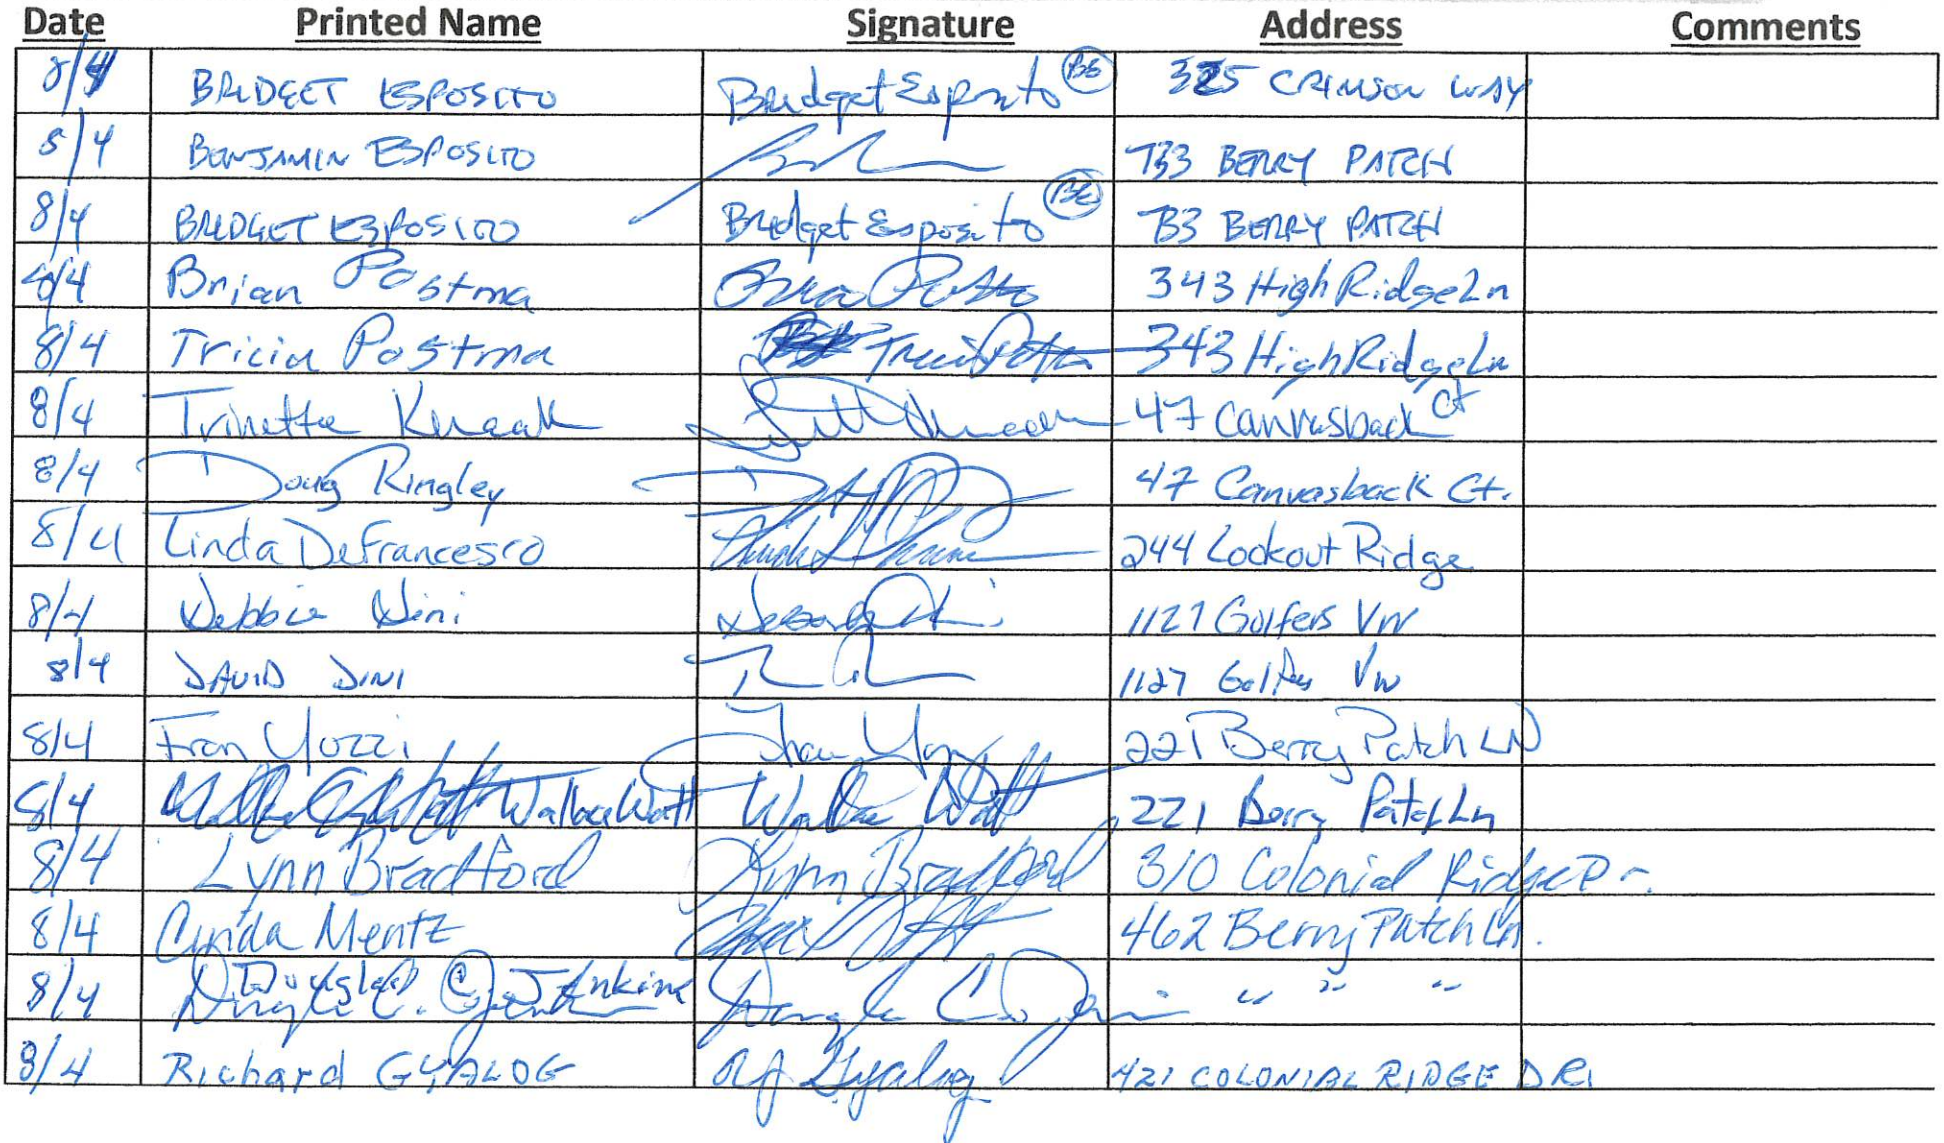 Date Printed Name Signature Address Comments
8/4 BRIDGET ESPOSITO Bridget Esposito BE 325 CRIMSON WAY
8/4 BENJAMIN ESPOSITO 733 BERRY PATCH
8/4 BRIDGET ESPOSITO Bridget Esposito BE 733 BERRY PATCH
8/4 Brian Postma 343 High Ridge Ln
8/4 Tricia Postma 343 High Ridge Ln
8/4 Trinetta Knaak 47 Canvasback Ct
8/4 Doug Ringley 47 Canvasback Ct.
8/4 Linda DeFrancesco 244 Lookout Ridge
8/4 Debbie Dini 1127 Golfers VW
8/4 DAVID DINI 1127 Golfers VW
8/4 Fran Yozzi Fran Yozzi 221 Berry Patch LN
8/4 Wallace Watt Wallace Watt 221 Berry Patch Ln
8/4 Lynn Bradford Lynn Bradford 310 Colonial Ridge Dr.
8/4 Cinda Mentz 462 Berry Patch Ln.
8/4 Douglas C. Jenkins " " "
8/4 Richard GYALOG RJ Gyalog 421 COLONIAL RIDGE DR.